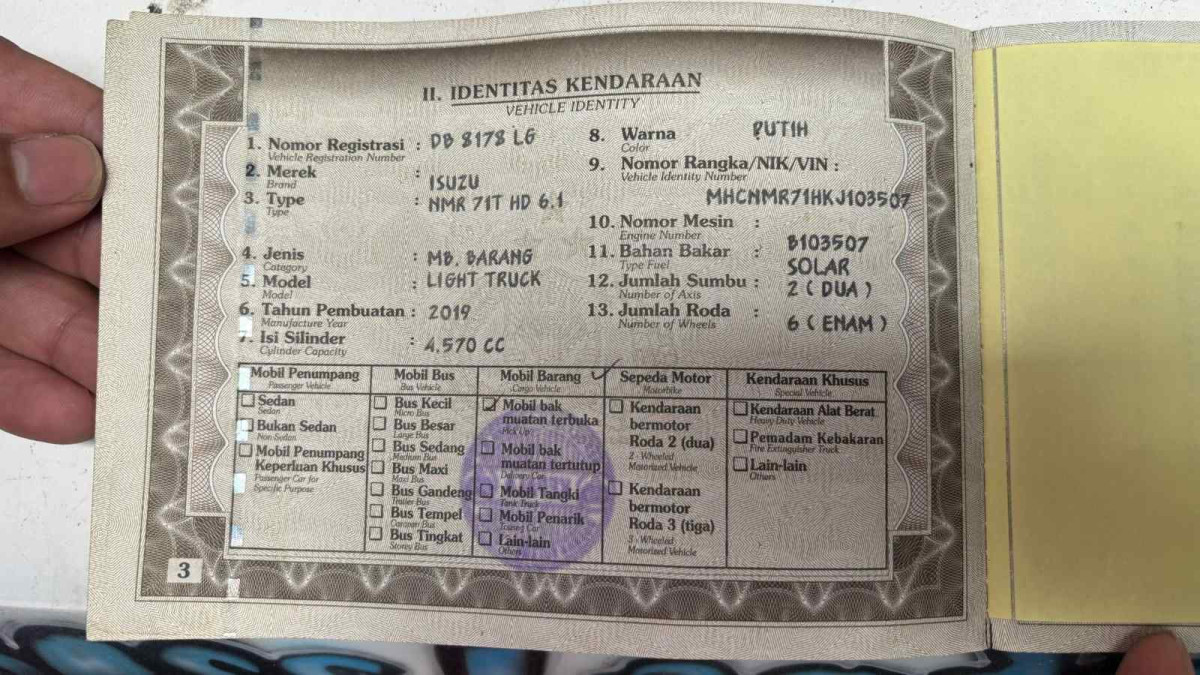 II. IDENTITAS KENDARAAN
VEHICLE IDENTITY
1. Nomor Registrasi : DB 8178 LG
Vehicle Registration Number
2. Merek : ISUZU
Brand
3. Type : NMR 71T HD 6.1
Type
4. Jenis : MB. BARANG
Category
5. Model : LIGHT TRUCK
Model
6. Tahun Pembuatan : 2019
Manufacture Year
7. Isi Silinder : 4.570 CC
Cylinder Capacity
8. Warna PUTIH
Color
9. Nomor Rangka/NIK/VIN :
Vehicle Identity Number
MHCNMR71HKJ103507
10. Nomor Mesin : B103507
Engine Number
11. Bahan Bakar : SOLAR
Type Fuel
12. Jumlah Sumbu : 2 ( DUA )
Number of Axis
13. Jumlah Roda : 6 ( ENAM )
Number of Wheels
Mobil Penumpang
Passenger Vehicle
Sedan
Sedan
Bukan Sedan
Non-Sedan
Mobil Penumpang
Keperluan Khusus
Passenger Car for
Specific Purpose
Mobil Bus
Bus Vehicle
Bus Kecil
Micro Bus
Bus Besar
Large Bus
Bus Sedang
Medium Bus
Bus Maxi
Maxi Bus
Bus Gandeng
Trailer Bus
Bus Tempel
Caravan Bus
Bus Tingkat
Storey Bus
Mobil Barang
Cargo Vehicle
Mobil bak
muatan terbuka
Pick Up
Mobil bak
muatan tertutup
Delivery Car
Mobil Tangki
Tank Truck
Mobil Penarik
Towing Car
Lain-lain
Others
Sepeda Motor
Motorbike
Kendaraan
bermotor
Roda 2 (dua)
2 - Wheeled
Motorized Vehicle
Kendaraan
bermotor
Roda 3 (tiga)
3 - Wheeled
Motorized Vehicle
Kendaraan Khusus
Special Vehicle
Kendaraan Alat Berat
Heavy Duty Vehicle
Pemadam Kebakaran
Fire Extinguisher Truck
Lain-lain
Others
3